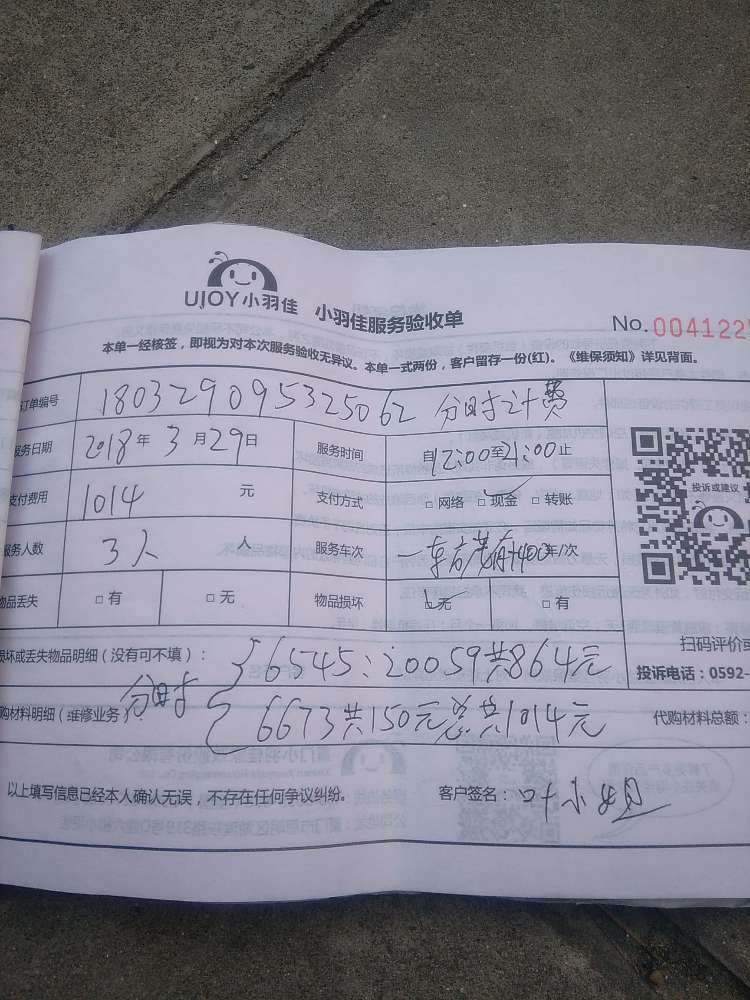 UJOY小羽佳 小羽佳服务验收单
No. 004122
本单一经核签，即视为对本次服务验收无异议。本单一式两份，客户留存一份(红)。《维保须知》详见背面。
订单编号 180329095325062 分时计费
服务日期 2018年3月29日 服务时间 自12:00至21:00止
支付费用 1014 元 支付方式 □网络 □现金 □转账
服务人数 3人 人 服务车次 一车 400车/次
物品丢失 □有 □无 物品损坏 □无 □有
投诉或建议
损坏或丢失物品明细（没有可不填）： 6545:20059共864元
扫码评价或
投诉电话：0592-
购材料明细（维修业务） 分时 6673共150元总共1014元 代购材料总额：
以上填写信息已经本人确认无误，不存在任何争议纠纷。 客户签名：叶小姐